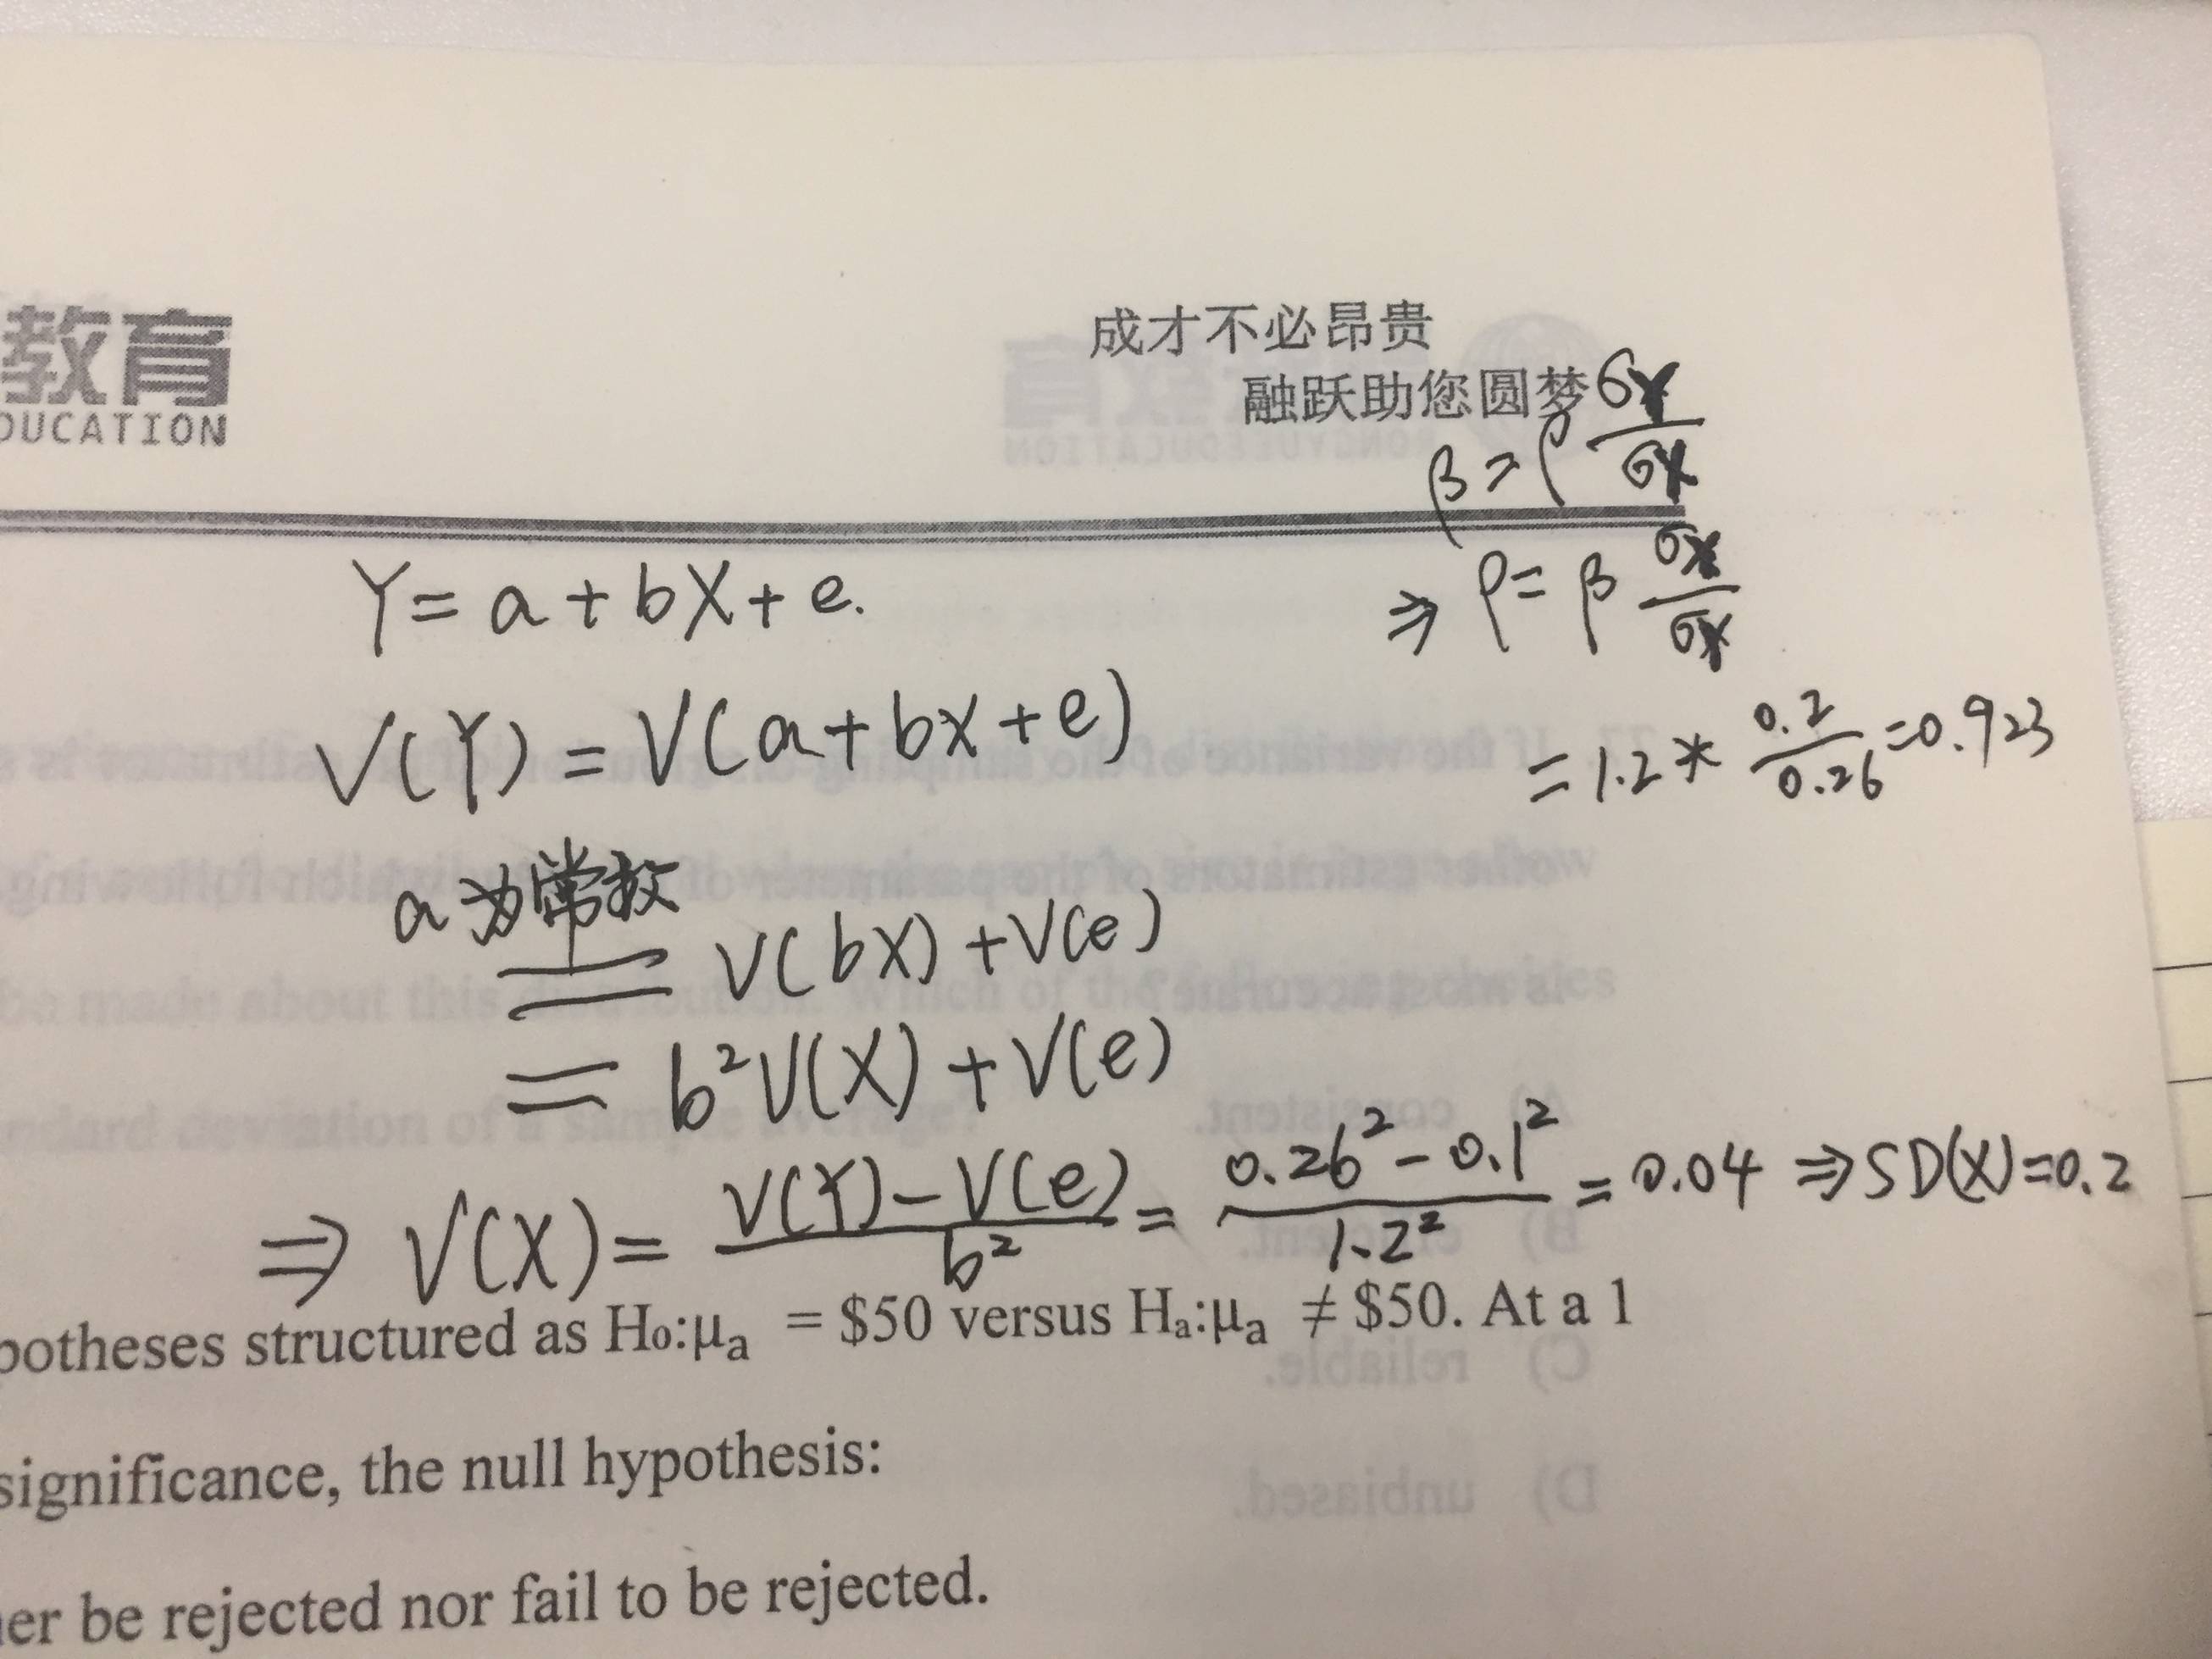 教育
DUCATION
成才不必昂贵
融跃助您圆梦
β = ρ σY/σX
⇒ ρ = β σX/σY
= 1.2 * 0.2/0.26 = 0.923
Y = a + bX + e.
V(Y) = V(a + bX + e)
a为常数
= V(bX) + V(e)
= b²V(X) + V(e)
⇒ V(X) = (V(Y) - V(e))/b² = (0.26² - 0.1²)/1.2² = 0.04 ⇒ SD(X) = 0.2
potheses structured as H₀:μₐ = $50 versus Hₐ:μₐ ≠ $50. At a 1
significance, the null hypothesis:
er be rejected nor fail to be rejected.